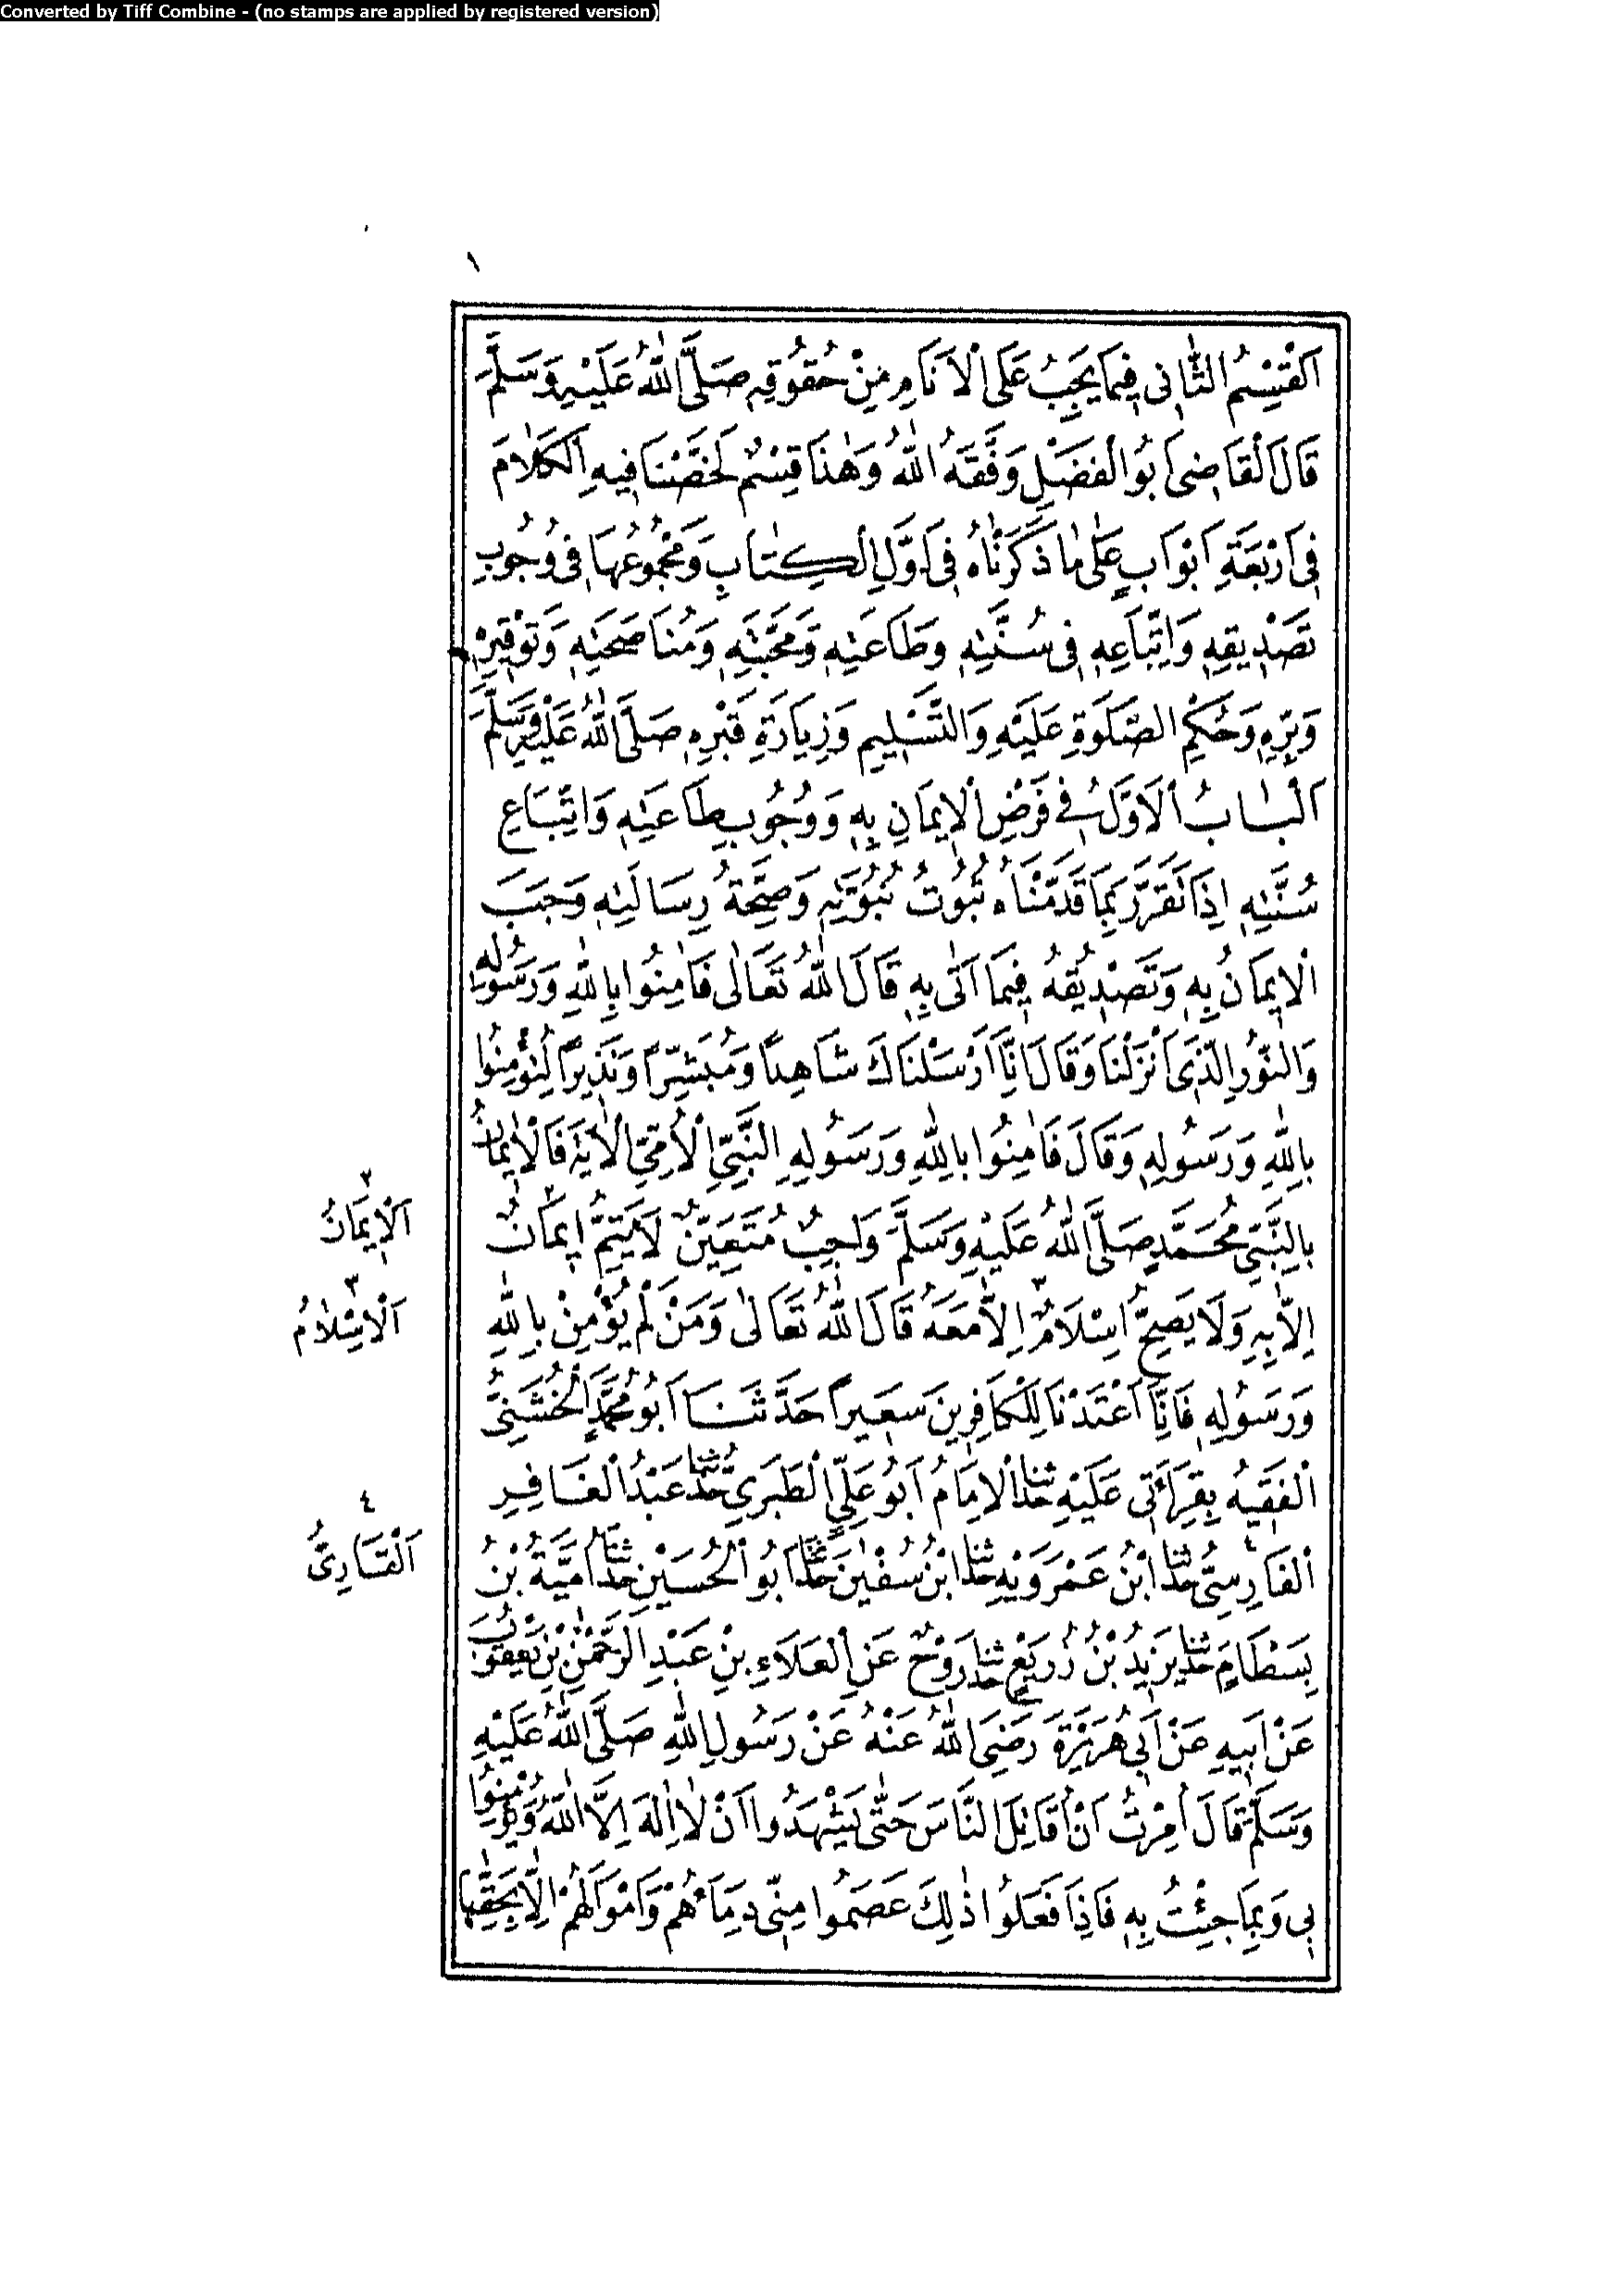 Converted by Tiff Combine - (no stamps are applied by registered version)
١
اَلْقِسْمُ الثَّانِى فِيمَا يَجِبُ عَلَى الْاَنَامِ مِنْ حُقُوقِهِ صَلَّى اللهُ عَلَيْهِ وَسَلَّمَ
قَالَ الْقَاضِى اَبُو الْفَضْلِ وَفَّقَهُ اللهُ وَهٰذَا قِسْمٌ لَخَّصْنَا فِيهِ الْكَلَامَ
فِى اَرْبَعَةِ اَبْوَابٍ عَلٰى مَا ذَكَرْنَاهُ فِى اَوَّلِ الْكِتَابِ وَمَجْمُوعُهَا فِى وُجُوبِ
تَصْدِيقِهِ وَاتِّبَاعِهِ فِى سُنَّتِهِ وَطَاعَتِهِ وَمَحَبَّتِهِ وَمُنَاصَحَتِهِ وَتَوْقِيرِهِ
وَبِرِّهِ وَحُكْمِ الصَّلَوةِ عَلَيْهِ وَالتَّسْلِيمِ وَزِيَارَةِ قَبْرِهِ صَلَّى اللهُ عَلَيْهِ وَسَلَّمَ
اَلْبَابُ الْاَوَّلُ فِى فَرْضِ الْاِيمَانِ بِهِ وَوُجُوبِ طَاعَتِهِ وَاتِّبَاعِ
سُنَّتِهِ اِذَا تَقَرَّرَ بِمَا قَدَّمْنَاهُ ثُبُوتُ نُبُوَّتِهِ وَصِحَّةُ رِسَالَتِهِ وَجَبَ
الْاِيمَانُ بِهِ وَتَصْدِيقُهُ فِيمَا اَتٰى بِهِ قَالَ اللهُ تَعَالٰى فَاٰمِنُوا بِاللهِ وَرَسُولِهِ
وَالنُّورِ الَّذِى اَنْزَلْنَا وَقَالَ اِنَّا اَرْسَلْنَاكَ شَاهِداً وَمُبَشِّراً وَنَذِيراً لِتُؤْمِنُوا
بِاللهِ وَرَسُولِهِ وَقَالَ فَاٰمِنُوا بِاللهِ وَرَسُولِهِ النَّبِىِّ الْاُمِّىِّ الْاٰيَةَ فَالْاِيمَانُ
بِالنَّبِىِّ مُحَمَّدٍ صَلَّى اللهُ عَلَيْهِ وَسَلَّمَ وَاجِبٌ مُتَعَيِّنٌ لَا يَتِمُّ اِيمَانٌ ٢
اِلَّا بِهِ وَلَا يَصِحُّ اِسْلَامٌ ٣ اِلَّا مَعَهُ قَالَ اللهُ تَعَالٰى وَمَنْ لَمْ يُؤْمِنْ بِاللهِ
وَرَسُولِهِ فَاِنَّا اَعْتَدْنَا لِلْكَافِرِينَ سَعِيراً حَدَّثَنَا اَبُو مُحَمَّدٍ الْخُشَنِىُّ
الْفَقِيهُ بِقِرَاءَتِى عَلَيْهِ حَدَّثَنَا الْاِمَامُ اَبُو عَلِىٍّ الْطَبَرِىُّ حَدَّثَنَا عَبْدُ الْغَافِرِ
الْفَارِسِىُّ ٤ حَدَّثَنَا ابْنُ عَمْرَوَيْهِ حَدَّثَنَا ابْنُ سُفْيٰنَ حَدَّثَنَا اَبُو الْحُسَيْنِ حَدَّثَنَا اُمَيَّةُ بْنُ
بِسْطَامٍ حَدَّثَنَا يَزِيدُ بْنُ زُرَيْعٍ حَدَّثَنَا رَوْحٌ عَنِ الْعَلَاءِ بْنِ عَبْدِ الرَّحْمٰنِ بْنِ يَعْقُوبَ
عَنْ اَبِيهِ عَنْ اَبِى هُرَيْرَةَ رَضِىَ اللهُ عَنْهُ عَنْ رَسُولِ اللهِ صَلَّى اللهُ عَلَيْهِ
وَسَلَّمَ قَالَ اُمِرْتُ اَنْ اُقَاتِلَ النَّاسَ حَتّٰى يَشْهَدُوا اَنْ لَا اِلٰهَ اِلَّا اللهُ وَيُؤْمِنُوا
بِى وَبِمَا جِئْتُ بِهِ فَاِذَا فَعَلُوا ذٰلِكَ عَصَمُوا مِنِّى دِمَاءَهُمْ وَاَمْوَالَهُمْ اِلَّا بِحَقِّهَا
٢
اَلْاِيمَانُ
٣
اَلْاِسْلَامُ
٤
اَلْقَارِىُّ